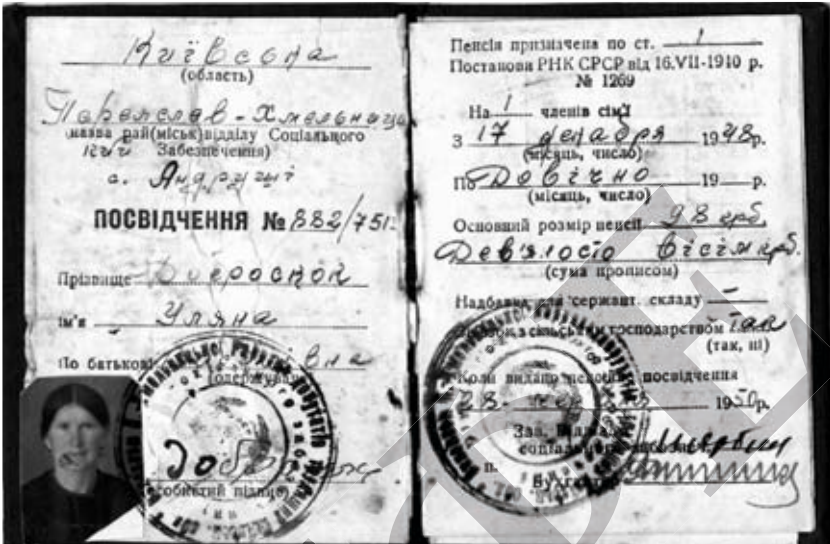 Київська
(область)
Переяслав-Хмельниць
(назва рай(міськ)відділу Соціального
кий Забезпечення)
с. Андруші
ПОСВІДЧЕННЯ № 882/751
Прізвище
Ім'я Уляна
По батькові вна
(особистий підпис)
Пенсія призначена по ст. 1
Постанови РНК СРСР від 16.VII-1940 р.
№ 1269
На 1 членів сім'ї
З 17 декабря 1948р.
(місяць, число)
По Довічно 19 — р.
(місяць, число)
Основний розмір пенсії 98 крб.
Дев'яносто вісім крб.
(сума прописом)
Надбавка для сержант. складу —
з сільським господарством так
(так, ні)
Коли видано пенсійне посвідчення
28 1950р.
Зав. відділу
соціального
Бухгалтер